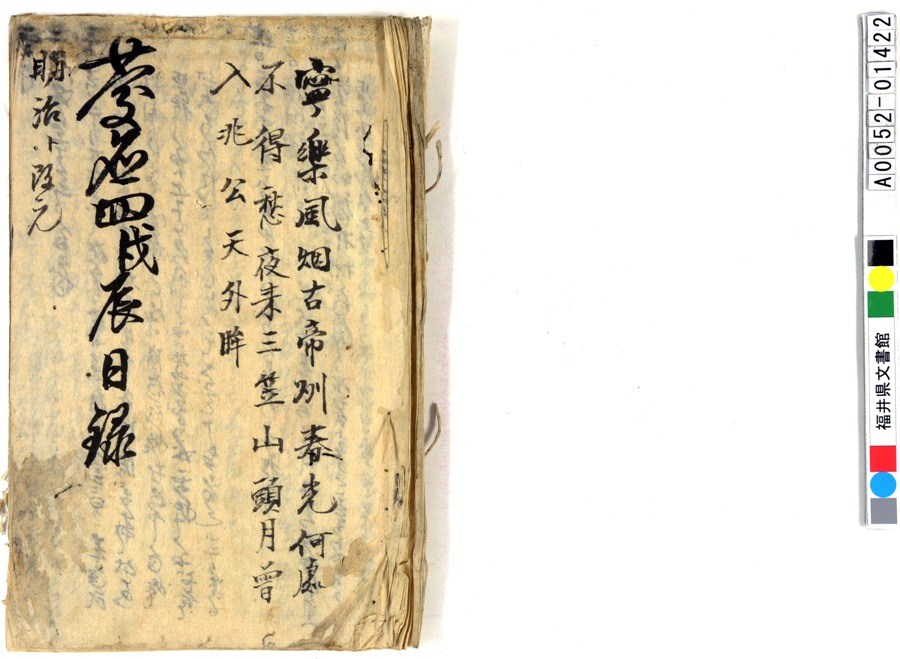 寧樂風烟古帝州春光何處
不得愁夜来三笠山頭月曽
入兆公天外眸
慶応四戊辰日録
明治ト改元
A0052-01422
福井県文書館